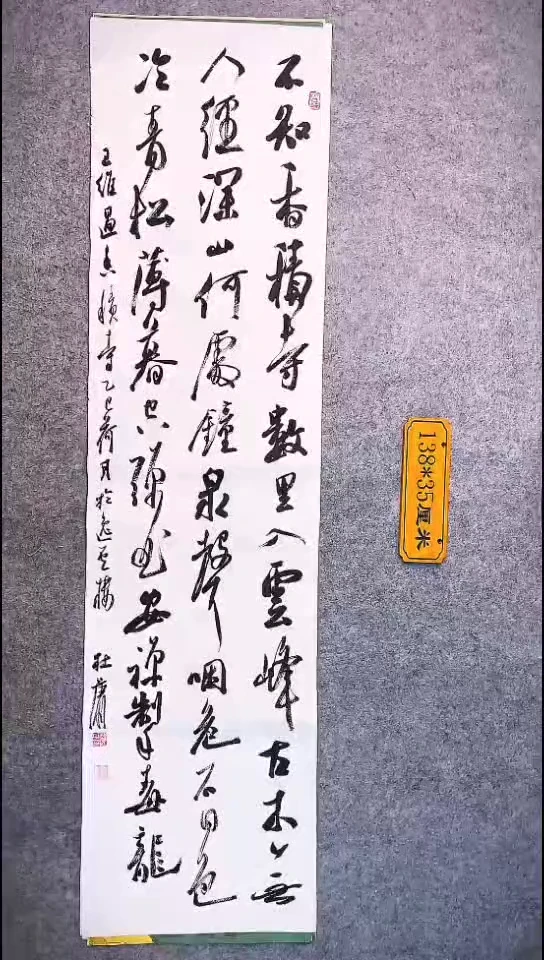 不知香積寺數里入雲峰古木無
人徑深山何處鐘泉聲咽危石日色
冷青松薄暮空潭曲安禪制毒龍
王維過香積寺乙巳荷月於樓
138*35厘米